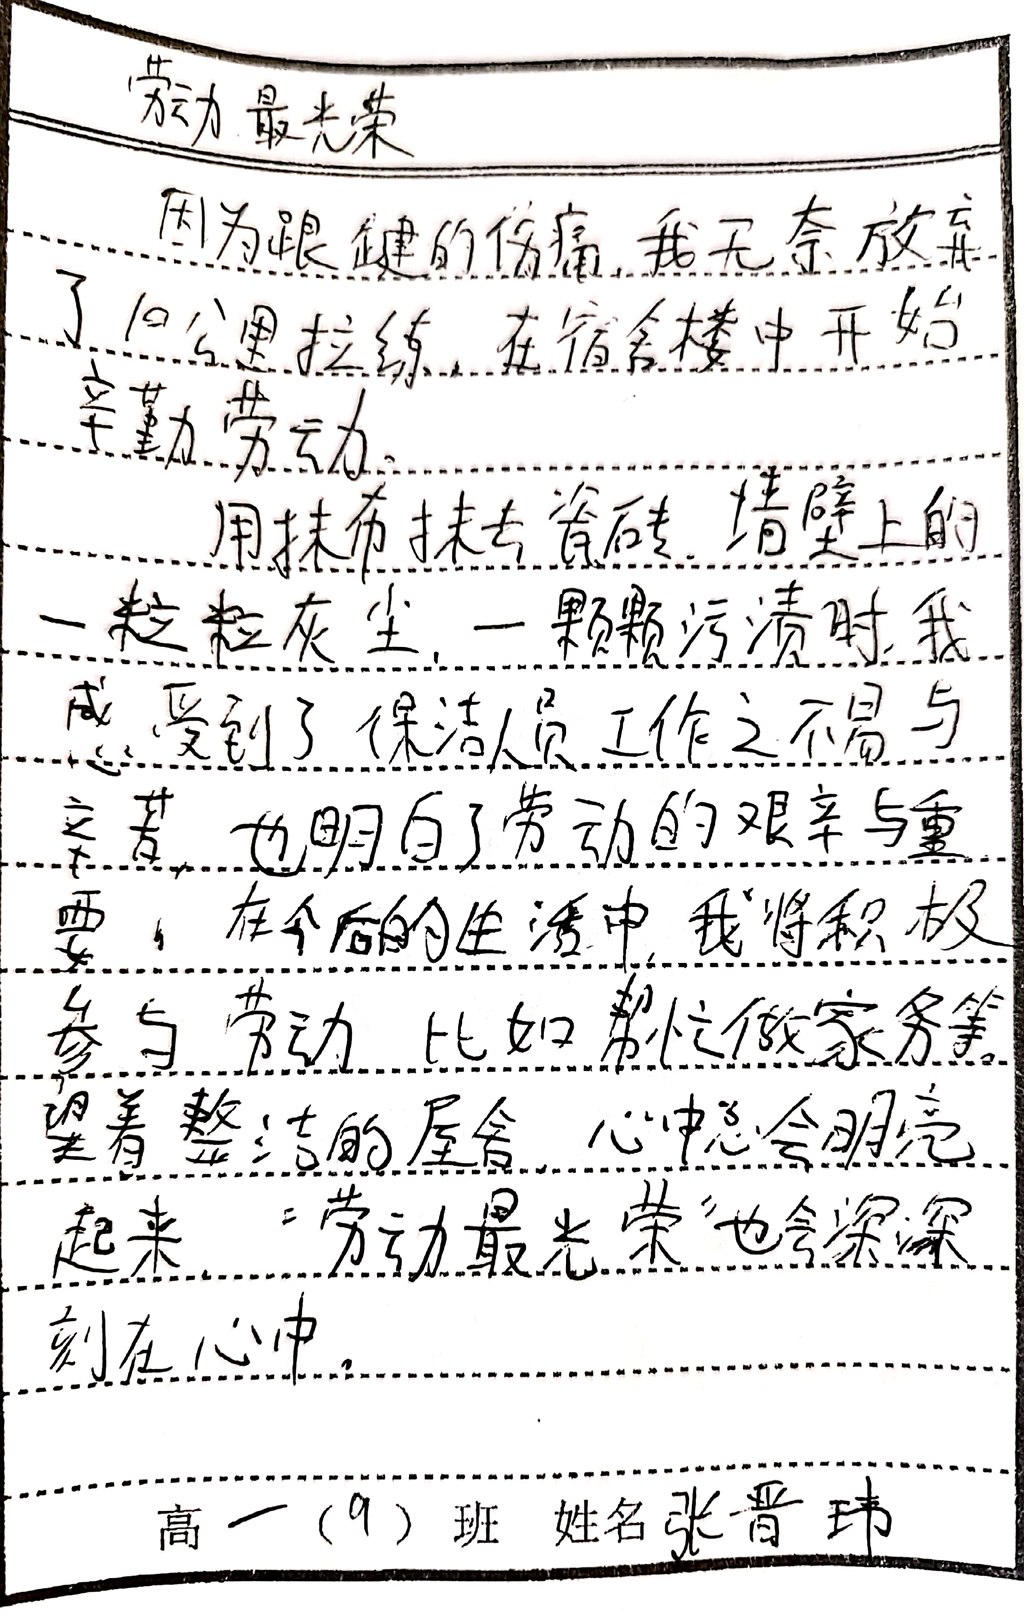 劳动最光荣
因为跟键的伤痛,我无奈放弃
了10公里拉练,在宿舍楼中开始
辛勤劳动。
用抹布抹去瓷砖、墙壁上的
一粒粒灰尘,一颗颗污渍时,我
感受到了保洁人员工作之不易与
辛苦,也明白了劳动的艰辛与重
要,在今后的生活中,我将积极
参与劳动,比如帮忙做家务等。
望着整洁的屋舍,心中总会明亮
起来,“劳动最光荣”也会深深
刻在心中。
高一(9)班 姓名张晋玮